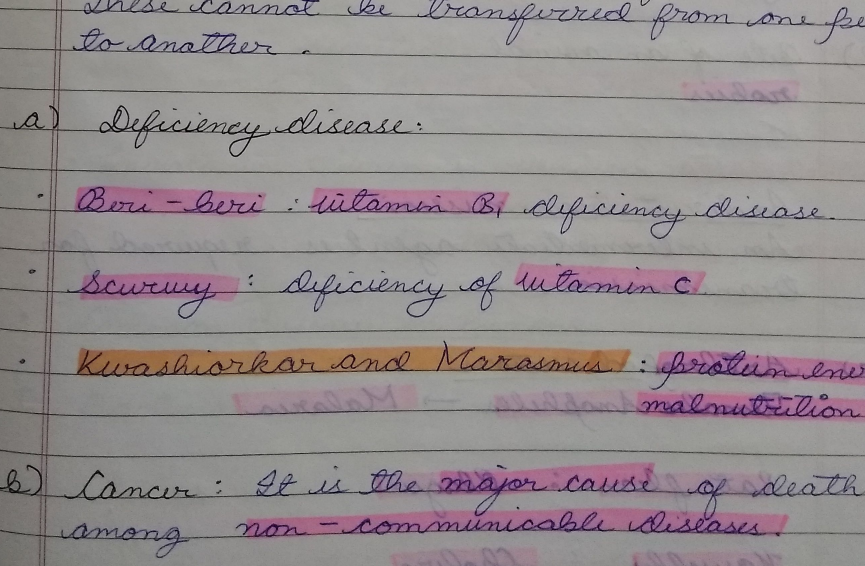 These cannot be transferred from one pe
to another.
a) Deficiency disease:
· Beri-beri : vitamin B1 deficiency disease.
· Scurvuy : deficiency of vitamin C
· Kwashiorkar and Marasmus : protein ene
malnutrition
b) Cancer : It is the major cause of death
among non-communicable diseases.